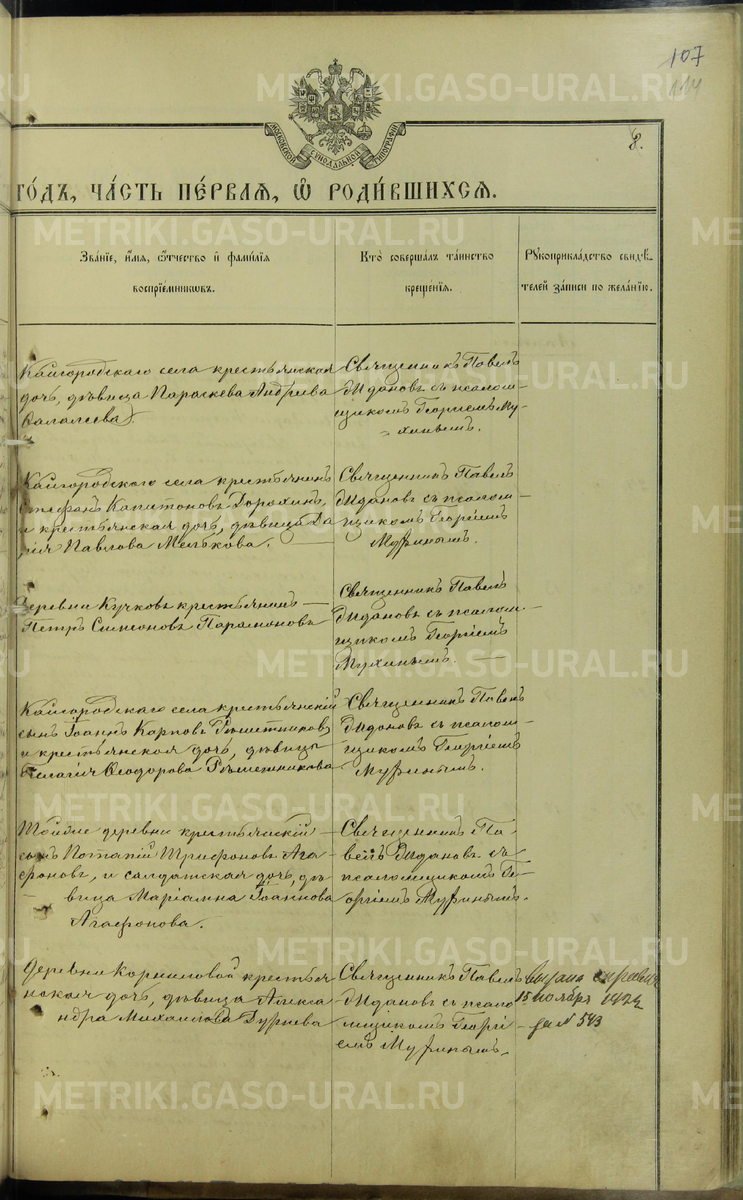 107
114
МОСКОВСКОЙ СѴНОДАЛЬНОЙ ТИПОГРАФІИ
8.
ГО́ДЪ, ЧА́СТЬ ПЕ́РВАЯ, Ѡ҆ РОДИ́ВШИХСЯ.
Зва́нїе, и҆́мя, ѻ҆́тчество и҆ фами́лїя
воспрїе́мникѡвъ.
Кто̀ соверша́лъ та́инство
креще́нїя.
Рꙋкоприкла́дство свидѣ́-
телей за́писи по жела́нїю.
Кайгородскаго села крестьянская
дочь, дѣвица Параскева Андреева
Священникъ Павелъ
Диановъ съ псалом-
щикомъ Георгіемъ Му-
хинымъ.
Кайгородскаго села крестьянинъ
Стефанъ Капитоновъ Дорохинъ,
и крестьянская доч, дѣвица Да
рія Павлова Мелькова.
Священникъ Павелъ
Диановъ съ псалом-
щикомъ Георгіемъ
Мухинымъ.
Деревни Кучковъ крестьянинъ
Петръ Симеоновъ Парамоновъ
Священникъ Павелъ
Диановъ съ псалом-
щикомъ Георгіемъ
Мухинымъ.
Кайгородскаго села крестьянскій
сынъ Іоаннъ Карповъ Рѣшетниковъ,
и крестьянская дочь, дѣвица
Пелагія Ѳеодорова Рѣшетникова
Священникъ Павелъ
Диановъ съ псалом-
щикомъ Георгіемъ
Мухинымъ.
Тойже деревни крестьянскій
сынъ Потапій Трифоновъ Ага-
фоновъ, и салдатская дочь, дѣ-
вица Маріамна Іоаннова
Агафонова.
Священникъ Па-
велъ Диановъ съ
псаломщикомъ Ге-
оргіемъ Мухинымъ.
Деревни Корниловой крестья
нская доч, дѣвица Алекса
ндра Михаилова Гурьева
Священникъ Павелъ
Диановъ съ псало
мщикомъ Георгі
емъ Мухинымъ.
выдана справка
15 ноября 1922
за № 543
METRIKI.GASO-URAL.RU